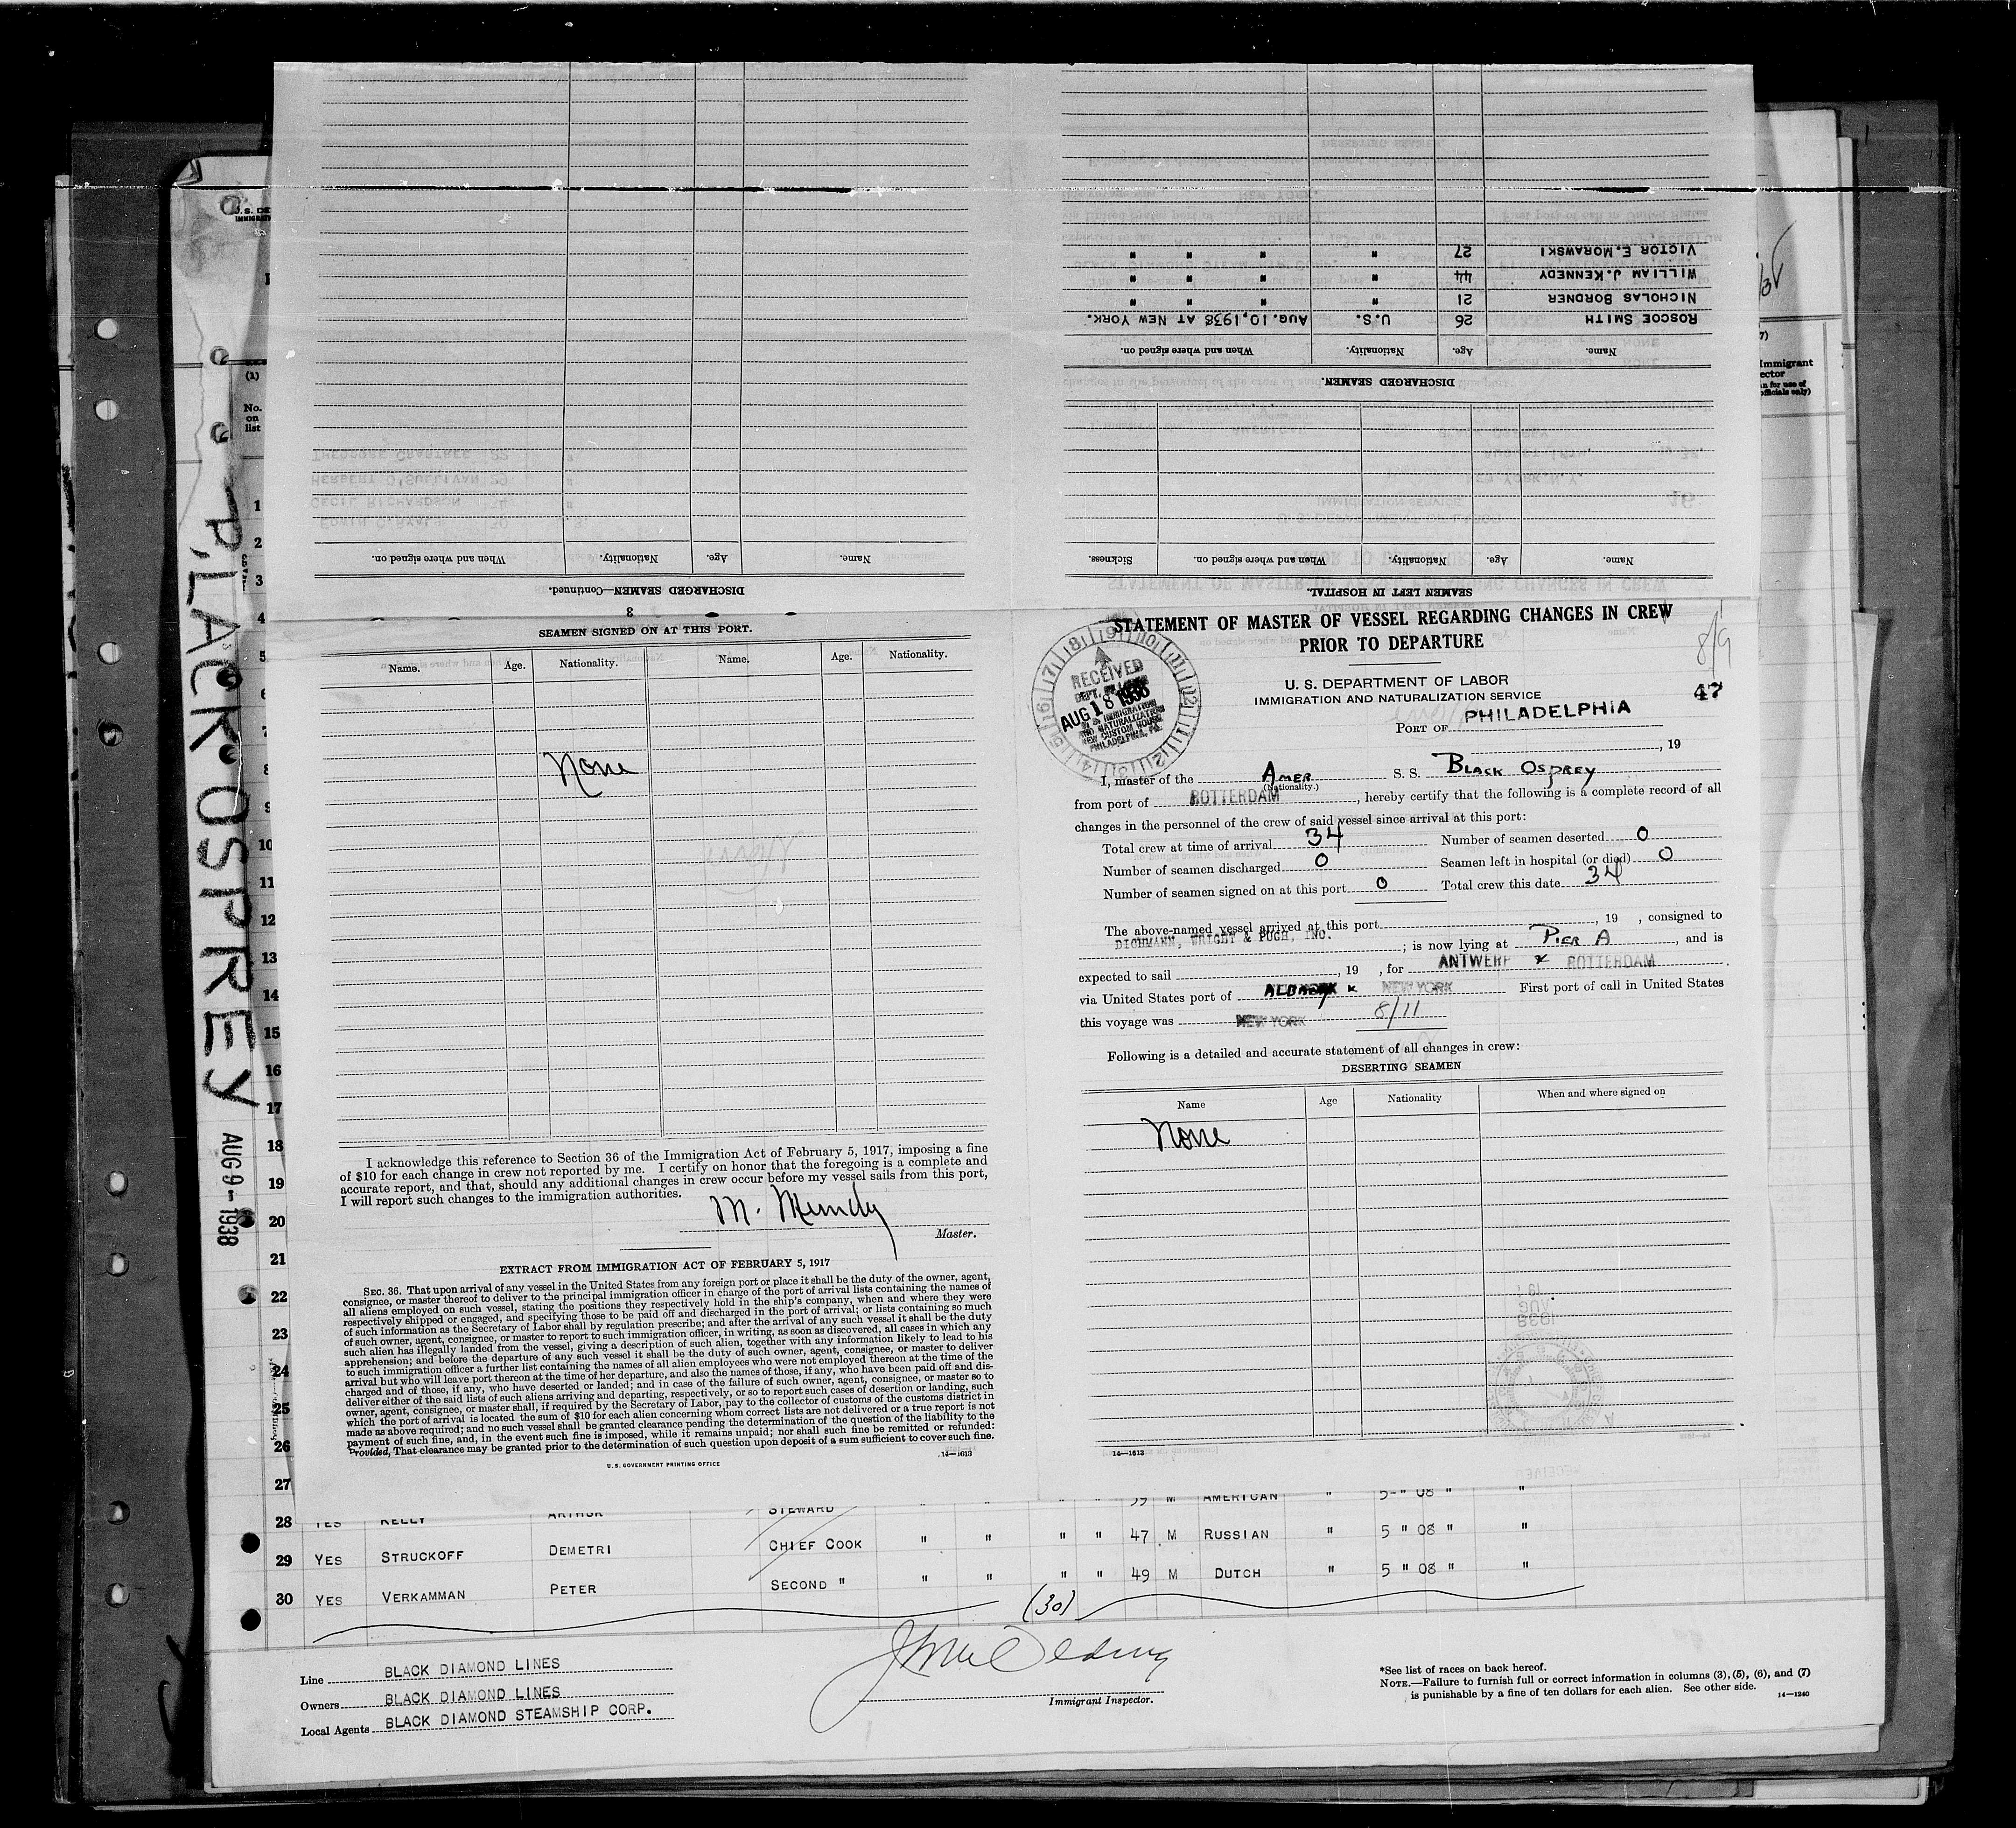 VICTOR E. MORAWSKI 27 " " " "
WILLIAM J. KENNEDY 44 " " " "
NICHOLAS BORDNER 21 " " " "
ROSCOE SMITH 26 U.S. AUG. 10, 1938 AT NEW YORK.
Name. Age. Nationality. When and where signed on.
DISCHARGED SEAMEN.
Name. Age. Nationality. When and where signed on. Sickness.
SEAMEN LEFT IN HOSPITAL.
Name. Age. Nationality. When and where signed on.
DISCHARGED SEAMEN—Continued.
3
SEAMEN SIGNED ON AT THIS PORT.
Name. Age. Nationality. Name. Age. Nationality.
None
I acknowledge this reference to Section 36 of the Immigration Act of February 5, 1917, imposing a fine
of $10 for each change in crew not reported by me. I certify on honor that the foregoing is a complete and
accurate report, and that, should any additional changes in crew occur before my vessel sails from this port,
I will report such changes to the immigration authorities.
M. Mundy
Master.
EXTRACT FROM IMMIGRATION ACT OF FEBRUARY 5, 1917
SEC. 36. That upon arrival of any vessel in the United States from any foreign port or place it shall be the duty of the owner, agent,
consignee, or master thereof to deliver to the principal immigration officer in charge of the port of arrival lists containing the names of
all aliens employed on such vessel, stating the positions they respectively hold in the ship's company, when and where they were
respectively shipped or engaged, and specifying those to be paid off and discharged in the port of arrival; or lists containing so much
of such information as the Secretary of Labor shall by regulation prescribe; and after the arrival of any such vessel it shall be the duty
of such owner, agent, consignee, or master to report to such immigration officer, in writing, as soon as discovered, all cases in which any
such alien has illegally landed from the vessel, giving a description of such alien, together with any information likely to lead to his
apprehension; and before the departure of any such vessel it shall be the duty of such owner, agent, consignee, or master to deliver
to such immigration officer a further list containing the names of all alien employees who were not employed thereon at the time of the
arrival but who will leave port thereon at the time of her departure, and also the names of those, if any, who have been paid off and dis-
charged and of those, if any, who have deserted or landed; and in case of the failure of such owner, agent, consignee, or master so to
deliver either of the said lists of such aliens arriving and departing, respectively, or so to report such cases of desertion or landing, such
owner, agent, consignee, or master shall, if required by the Secretary of Labor, pay to the collector of customs of the customs district in
which the port of arrival is located the sum of $10 for each alien concerning whom correct lists are not delivered or a true report is not
made as above required; and no such vessel shall be granted clearance pending the determination of the question of the liability to the
payment of such fine, and, in the event such fine is imposed, while it remains unpaid; nor shall such fine be remitted or refunded:
Provided, That clearance may be granted prior to the determination of such question upon deposit of a sum sufficient to cover such fine.
U. S. GOVERNMENT PRINTING OFFICE 14—1613
STATEMENT OF MASTER OF VESSEL REGARDING CHANGES IN CREW
PRIOR TO DEPARTURE
8/9
U. S. DEPARTMENT OF LABOR
IMMIGRATION AND NATURALIZATION SERVICE
47
PORT OF PHILADELPHIA
, 19
RECEIVED
DEPT. OF LABOR
AUG 18 1938
IMMIGRATION
AND NATURALIZATION
NEW CUSTOM HOUSE
PHILADELPHIA, PA.
I, master of the AMER S. S. BLACK OSPREY
(Nationality.)
from port of ROTTERDAM, hereby certify that the following is a complete record of all
changes in the personnel of the crew of said vessel since arrival at this port:
Total crew at time of arrival 34 Number of seamen deserted 0
Number of seamen discharged 0 Seamen left in hospital (or died) 0
Number of seamen signed on at this port 0 Total crew this date 34
The above-named vessel arrived at this port , 19 , consigned to
DICHMANN, WRIGHT & PUGH, INC. ; is now lying at PIER A , and is
expected to sail , 19 , for ANTWERP & ROTTERDAM .
via United States port of ALBANY & NEW YORK First port of call in United States
this voyage was NEW YORK 8/11
Following is a detailed and accurate statement of all changes in crew:
DESERTING SEAMEN
Name Age Nationality When and where signed on
None
14—1613
(1)
No.
on
list
1
2
3
4
5
6
7
8
9
10
11
12
13
14
15
16
17
18
19
20
21
22
23
24
25
26
27
28 YES KELLY ARTHUR STEWARD " " " " 39 M AMERICAN " 5-" 08 " "
29 YES STRUCKOFF DEMETRI CHIEF COOK " " " " 47 M RUSSIAN " 5 " 08 " "
30 YES VERKAMMAN PETER SECOND " " " " " 49 M DUTCH " 5 " 08 " "
(30)
Line BLACK DIAMOND LINES
Owners BLACK DIAMOND LINES
Local Agents BLACK DIAMOND STEAMSHIP CORP.
Immigrant Inspector.
*See list of races on back hereof.
NOTE.—Failure to furnish full or correct information in columns (3), (5), (6), and (7)
is punishable by a fine of ten dollars for each alien. See other side. 14—1240
OSPREY
AUG 9-1938